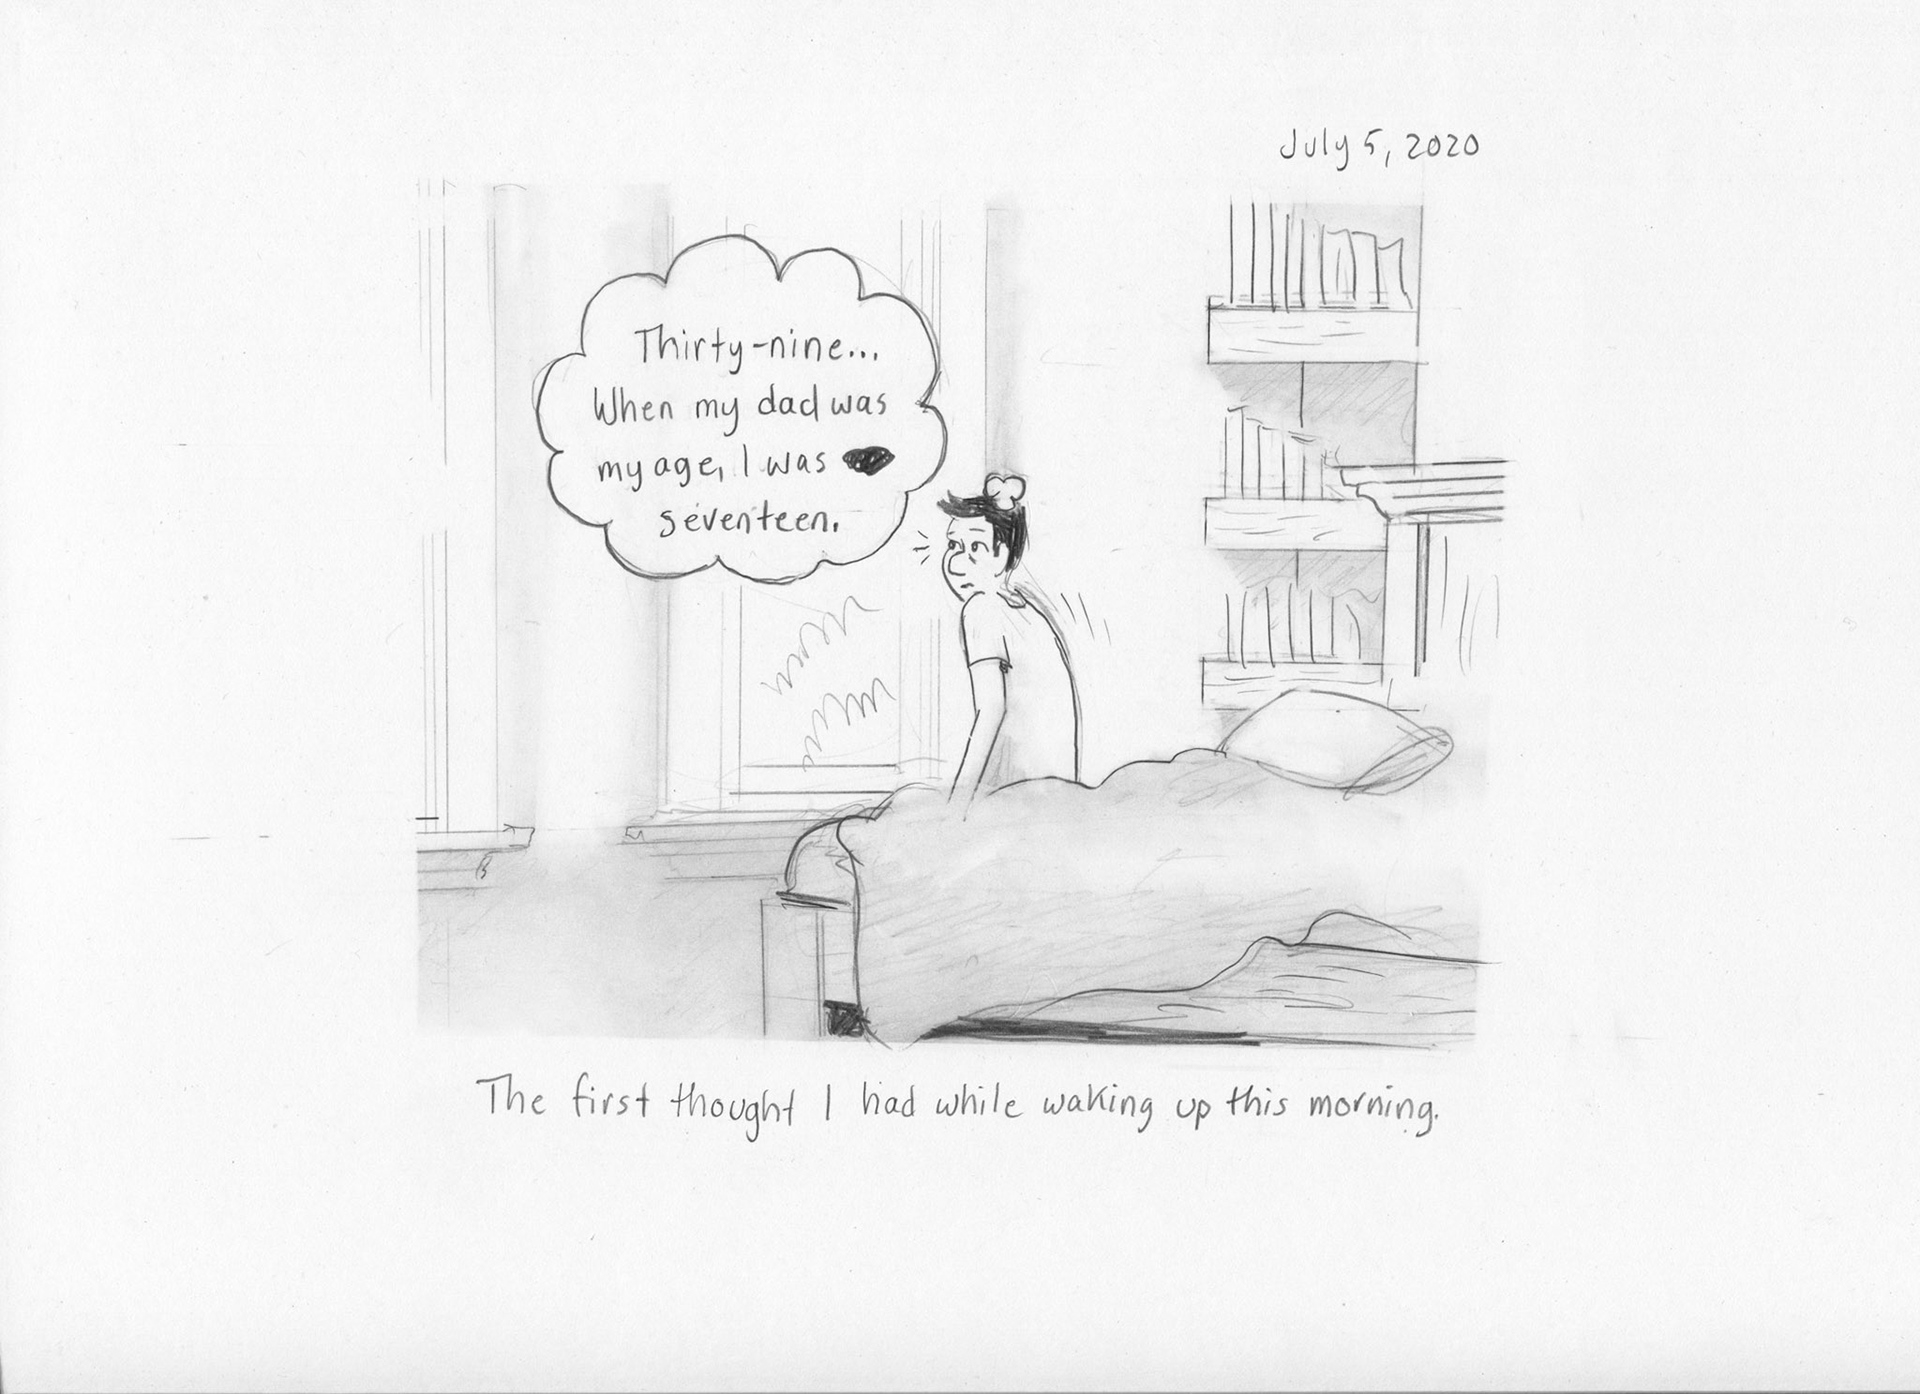 July 5, 2020
Thirty-nine...
When my dad was
my age, I was
seventeen.
The first thought I had while waking up this morning.